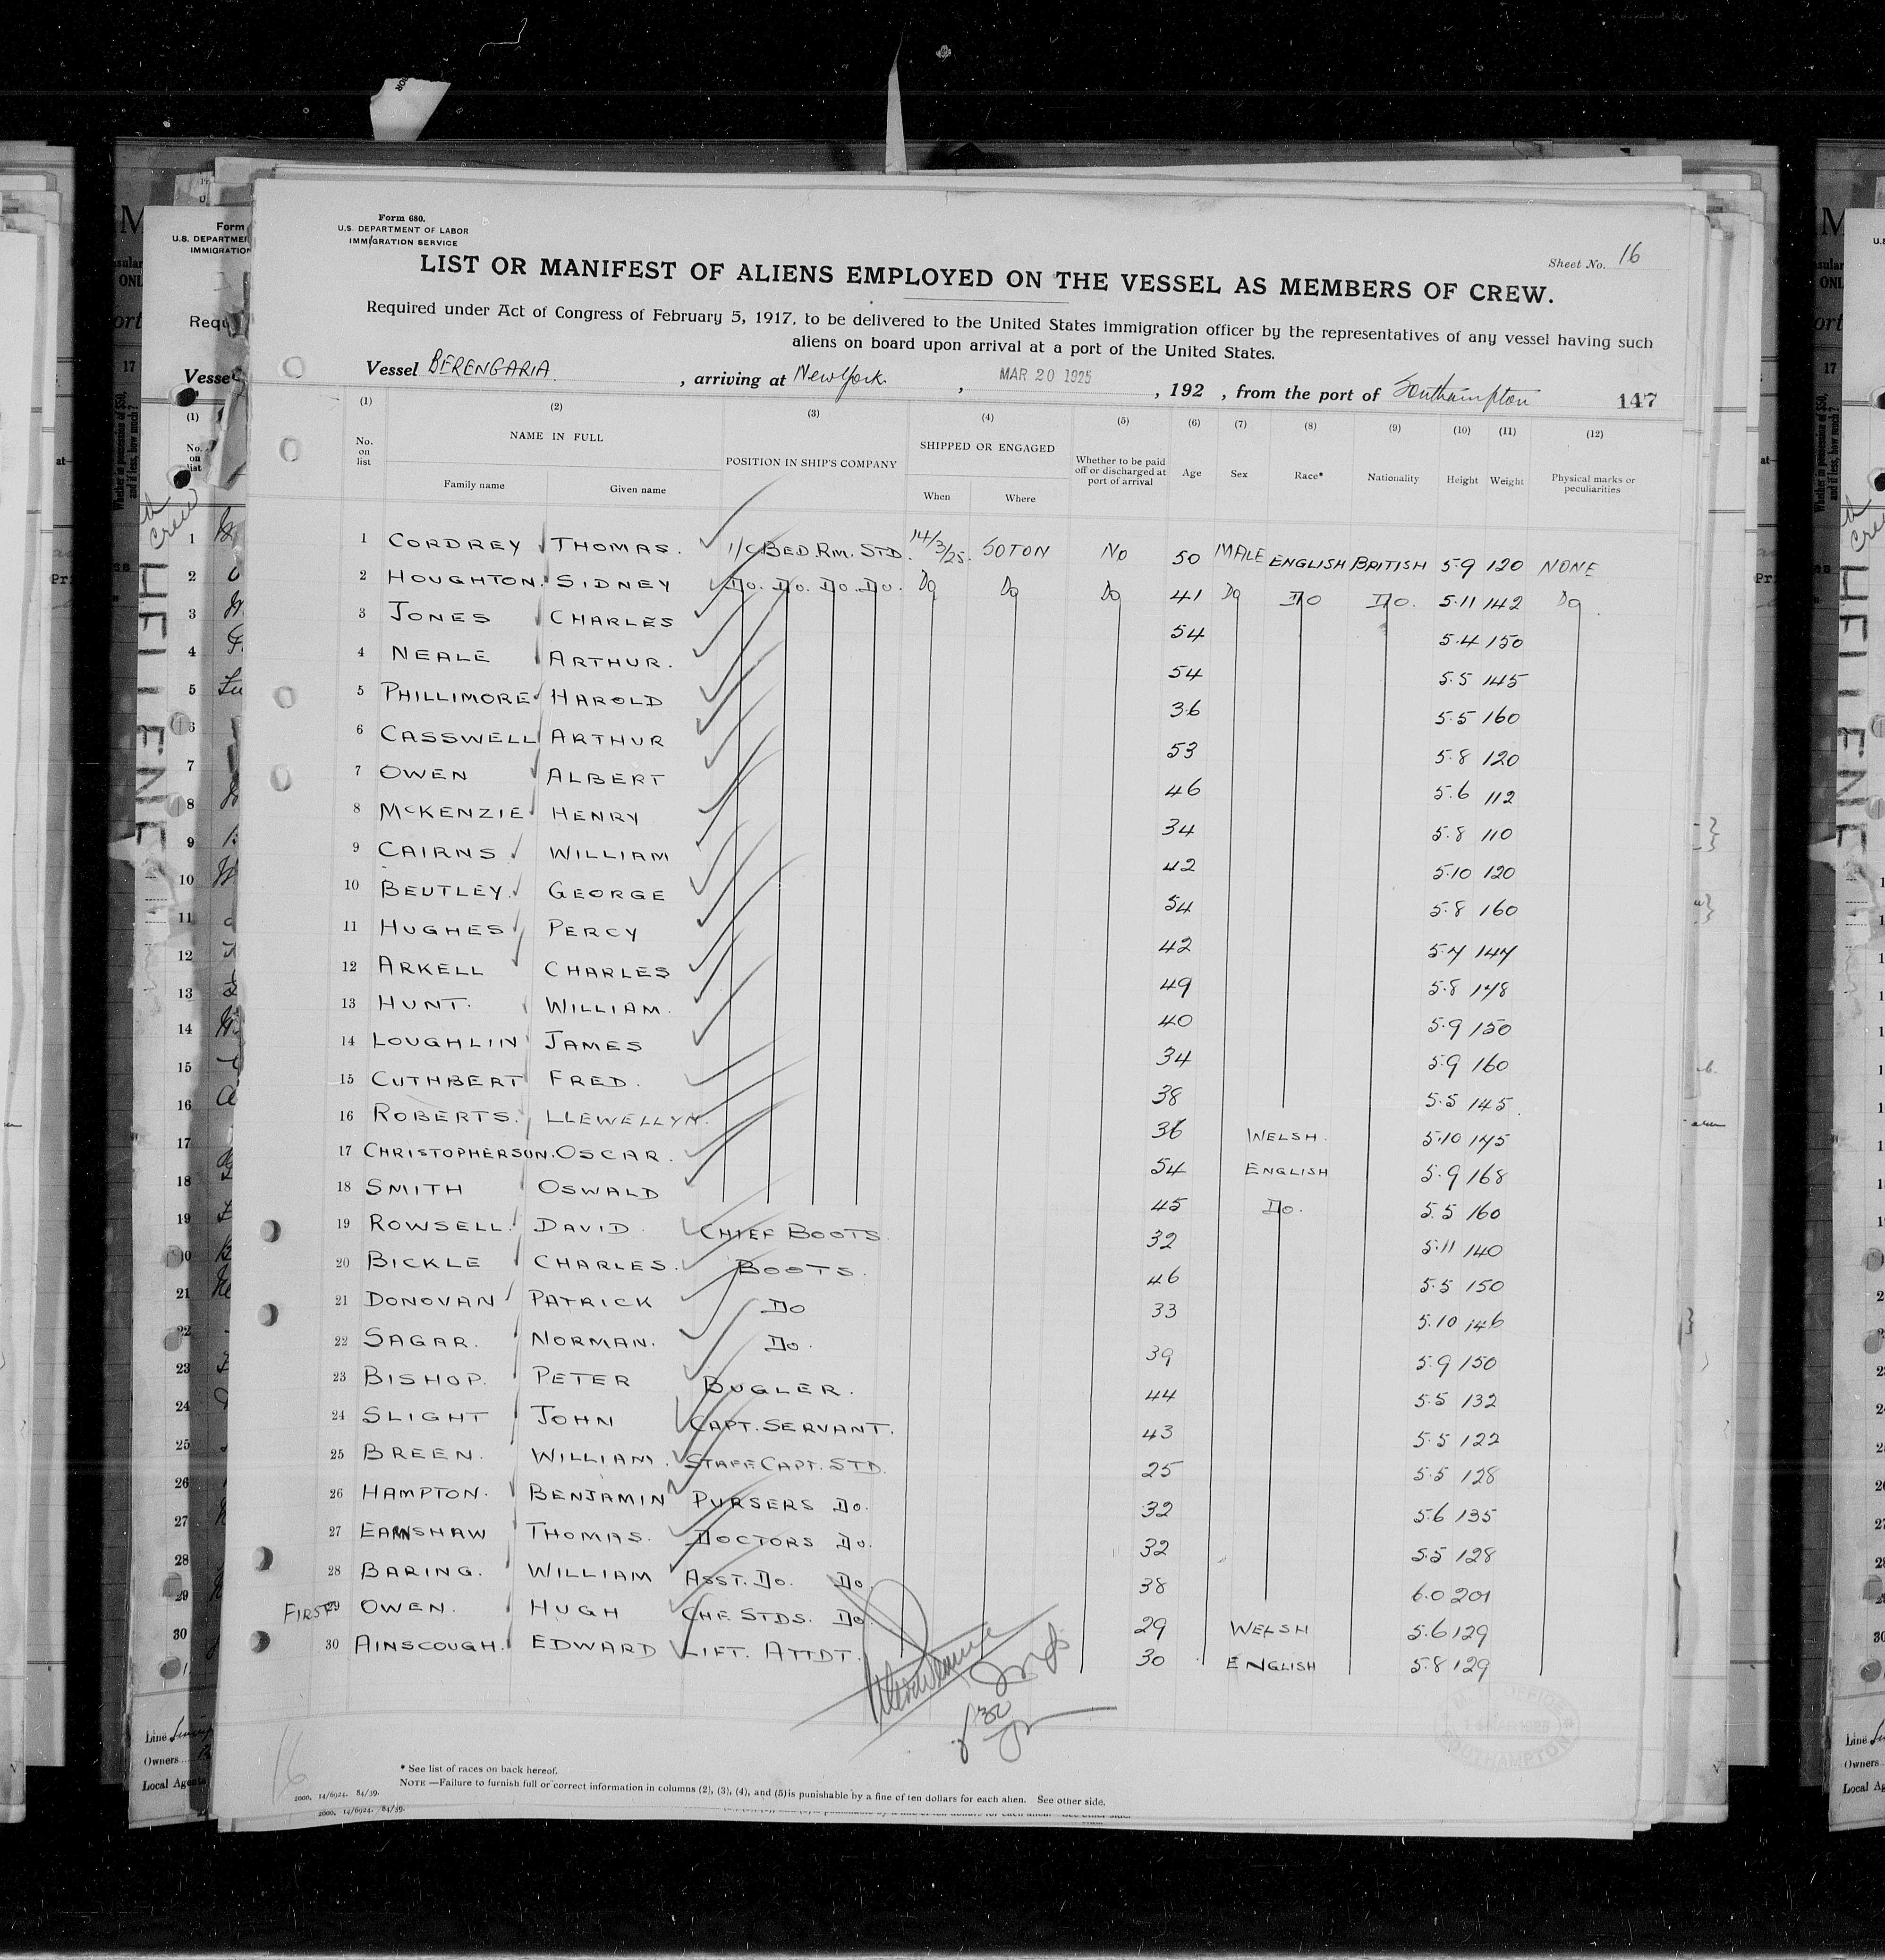 Form 680.
U.S. DEPARTMENT OF LABOR
IMMIGRATION SERVICE
Sheet No. 16
LIST OR MANIFEST OF ALIENS EMPLOYED ON THE VESSEL AS MEMBERS OF CREW.
Required under Act of Congress of February 5, 1917, to be delivered to the United States immigration officer by the representatives of any vessel having such
aliens on board upon arrival at a port of the United States.
Vessel BERENGARIA, arriving at New York, MAR 20 1925, 192 , from the port of Southampton 147
(1) (2) (3) (4) (5) (6) (7) (8) (9) (10) (11) (12)
No. on list NAME IN FULL Family name Given name POSITION IN SHIP'S COMPANY SHIPPED OR ENGAGED When Where Whether to be paid off or discharged at port of arrival Age Sex Race* Nationality Height Weight Physical marks or peculiarities
1 CORDREY THOMAS. 1/C BED. RM. STD. 14/3/25. SOTON NO 50 MALE ENGLISH BRITISH 5.9 120 NONE
2 HOUGHTON. SIDNEY Do. Do. Do. Do. Do Do Do 41 Do Do Do. 5.11 142 Do.
3 JONES CHARLES 54 5.4 150
4 NEALE ARTHUR. 54 5.5 145
5 PHILLIMORE HAROLD 36 5.5 160
6 CASSWELL ARTHUR 53 5.8 120
7 OWEN ALBERT 46 5.6 112
8 McKENZIE HENRY 34 5.8 110
9 CAIRNS WILLIAM 42 5.10 120
10 BEUTLEY. GEORGE 54 5.8 160
11 HUGHES PERCY 42 5.7 147
12 ARKELL CHARLES 49 5.8 148
13 HUNT. WILLIAM. 40 5.9 150
14 LOUGHLIN JAMES 34 5.9 160
15 CUTHBERT FRED. 38 5.5 145.
16 ROBERTS. LLEWELLYN. 36 WELSH. 5.10 145
17 CHRISTOPHERSON. OSCAR. 54 ENGLISH 5.9 168
18 SMITH OSWALD 45 Do. 5.5 160
19 ROWSELL. DAVID. CHIEF BOOTS. 32 5.11 140
20 BICKLE CHARLES. BOOTS. 46 5.5 150
21 DONOVAN PATRICK Do 33 5.10 146
22 SAGAR. NORMAN. Do. 39 5.9 150
23 BISHOP. PETER BUGLER. 44 5.5 132
24 SLIGHT JOHN CAPT. SERVANT. 43 5.5 122
25 BREEN. WILLIAM. STAFF CAPT. STD. 25 5.5 128
26 HAMPTON. BENJAMIN PURSERS Do. 32 5.6 135
27 EARNSHAW THOMAS. DOCTORS Do. 32 5.5 128
28 BARING. WILLIAM ASST. Do. Do. 38 6.0 201
FIRST 29 OWEN. HUGH CHF. STDS. Do. 29 WELSH 5.6 129
30 AINSCOUGH. EDWARD LIFT. ATTDT. 30 ENGLISH 5.8 129
16
* See list of races on back hereof.
NOTE —Failure to furnish full or correct information in columns (2), (3), (4), and (5) is punishable by a fine of ten dollars for each alien. See other side.
2000, 14/6924. 84/39.
2000, 14/6924. 84/39.